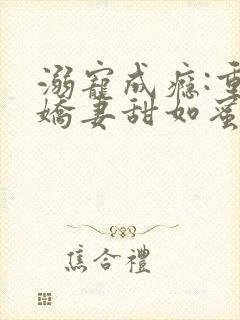 溺寵成癮:重
嬌妻甜如蜜
焦合禮